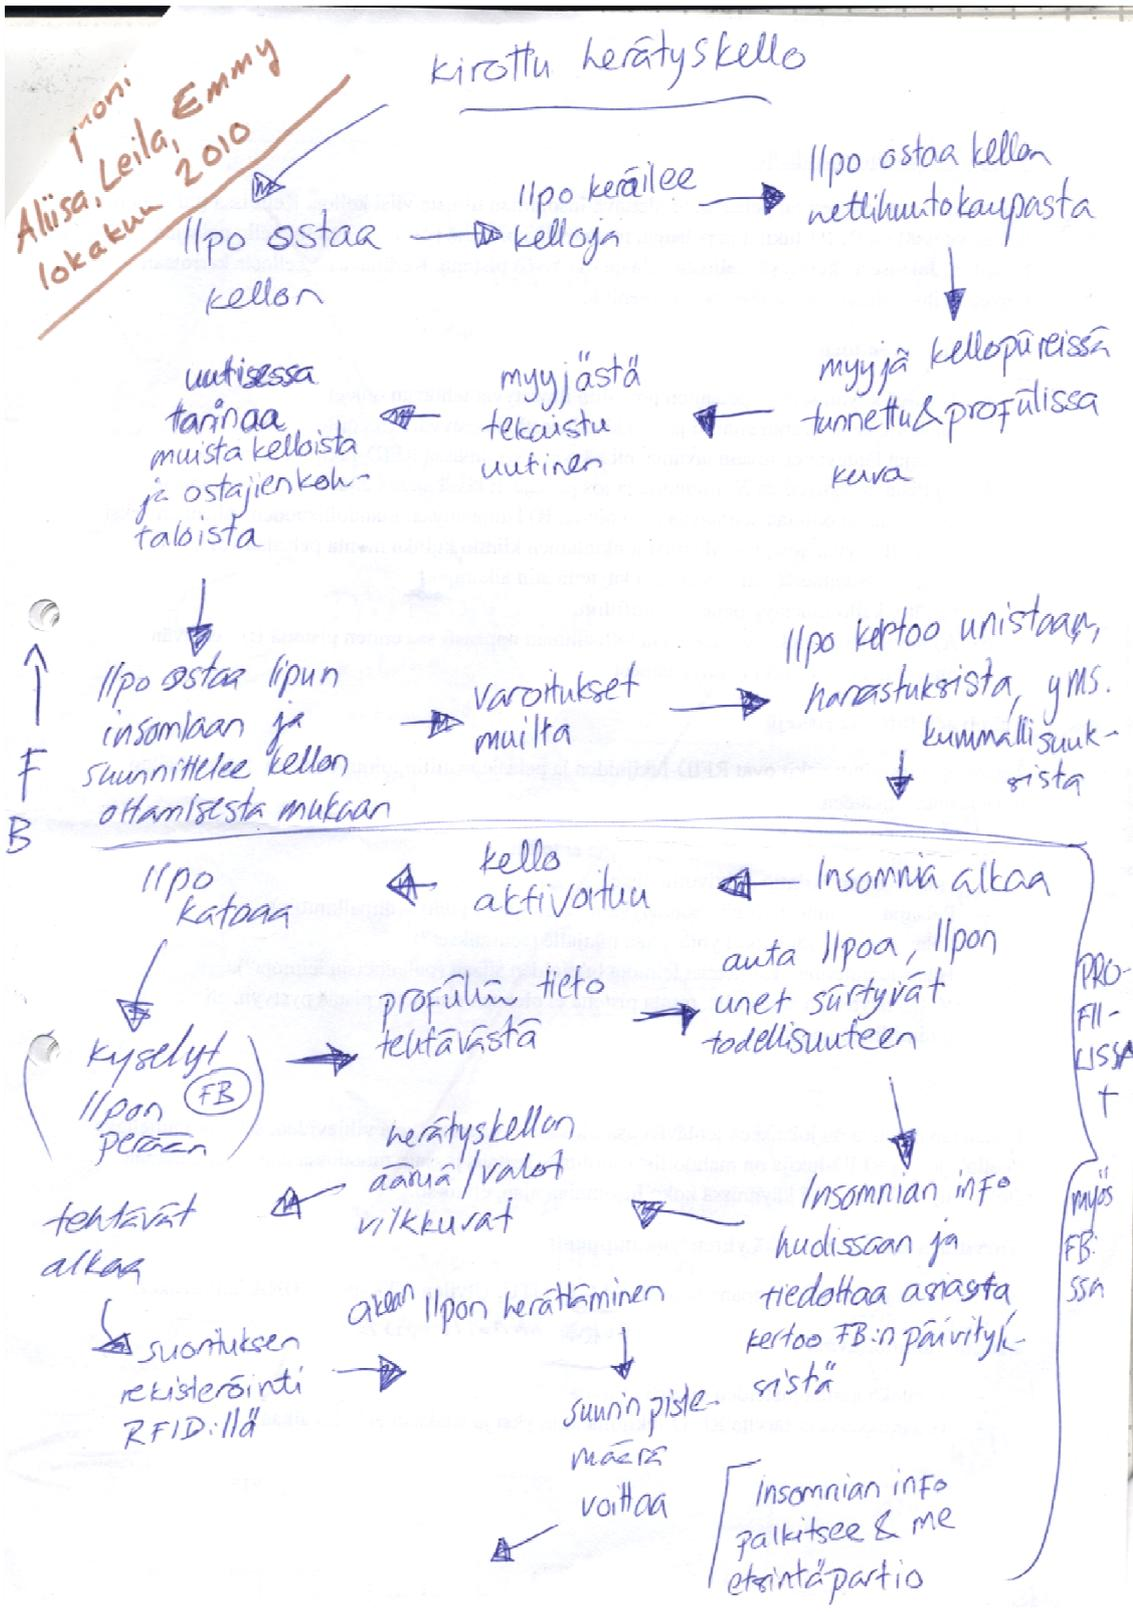 Aliisa, Leila, Emmy
lokakuu 2010
kirottu herätyskello
Ilpo ostaa
kellon
Ilpo keräilee
kelloja
Ilpo ostaa kellon
nettihuutokaupasta
myyjä kellopiireissä
tunnettu & profiilissa
kuva
myyjästä
tekaistu
uutinen
uutisessa
tarinaa
muista kelloista
ja ostajien koh-
taloista
Ilpo ostaa lipun
insomiaan ja
suunnittelee kellon
ottamisesta mukaan
varoitukset
muilta
Ilpo kertoo unistaan,
harrastuksista, yms.
kummallisuuk-
sista
FB
Insomnia alkaa
kello
aktivoituu
Ilpo
katoaa
kyselyt
Ilpon FB
perään
profiiliin tieto
tehtävästä
auta Ilpoa, Ilpon
unet siirtyvät
todellisuuteen
Insomnian info
huolissaan ja
tiedottaa asiasta
kertoo FB:n päivityk-
sistä
herätyskellon
ääniä/valot
vilkkuvat
tehtävät
alkaa
suorituksen
rekisteröinti
RFID:llä
Ilpon herättäminen
suurin piste-
määrä
voittaa
Insomnian info
palkitsee & me
etsintäpartio
PRO-
FII-
LISSA
+
myös
FB:
ssä